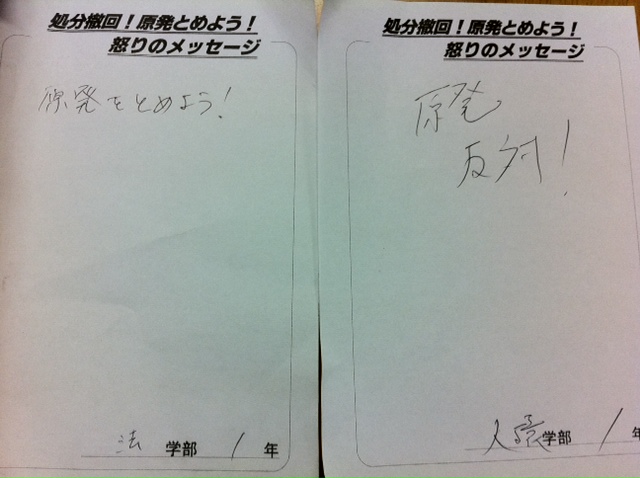 処分撤回!原発とめよう!
怒りのメッセージ
原発をとめよう!
法 学部 1 年
処分撤回!原発とめよう!
怒りのメッセージ
原発
反対!
人環学部 1 年